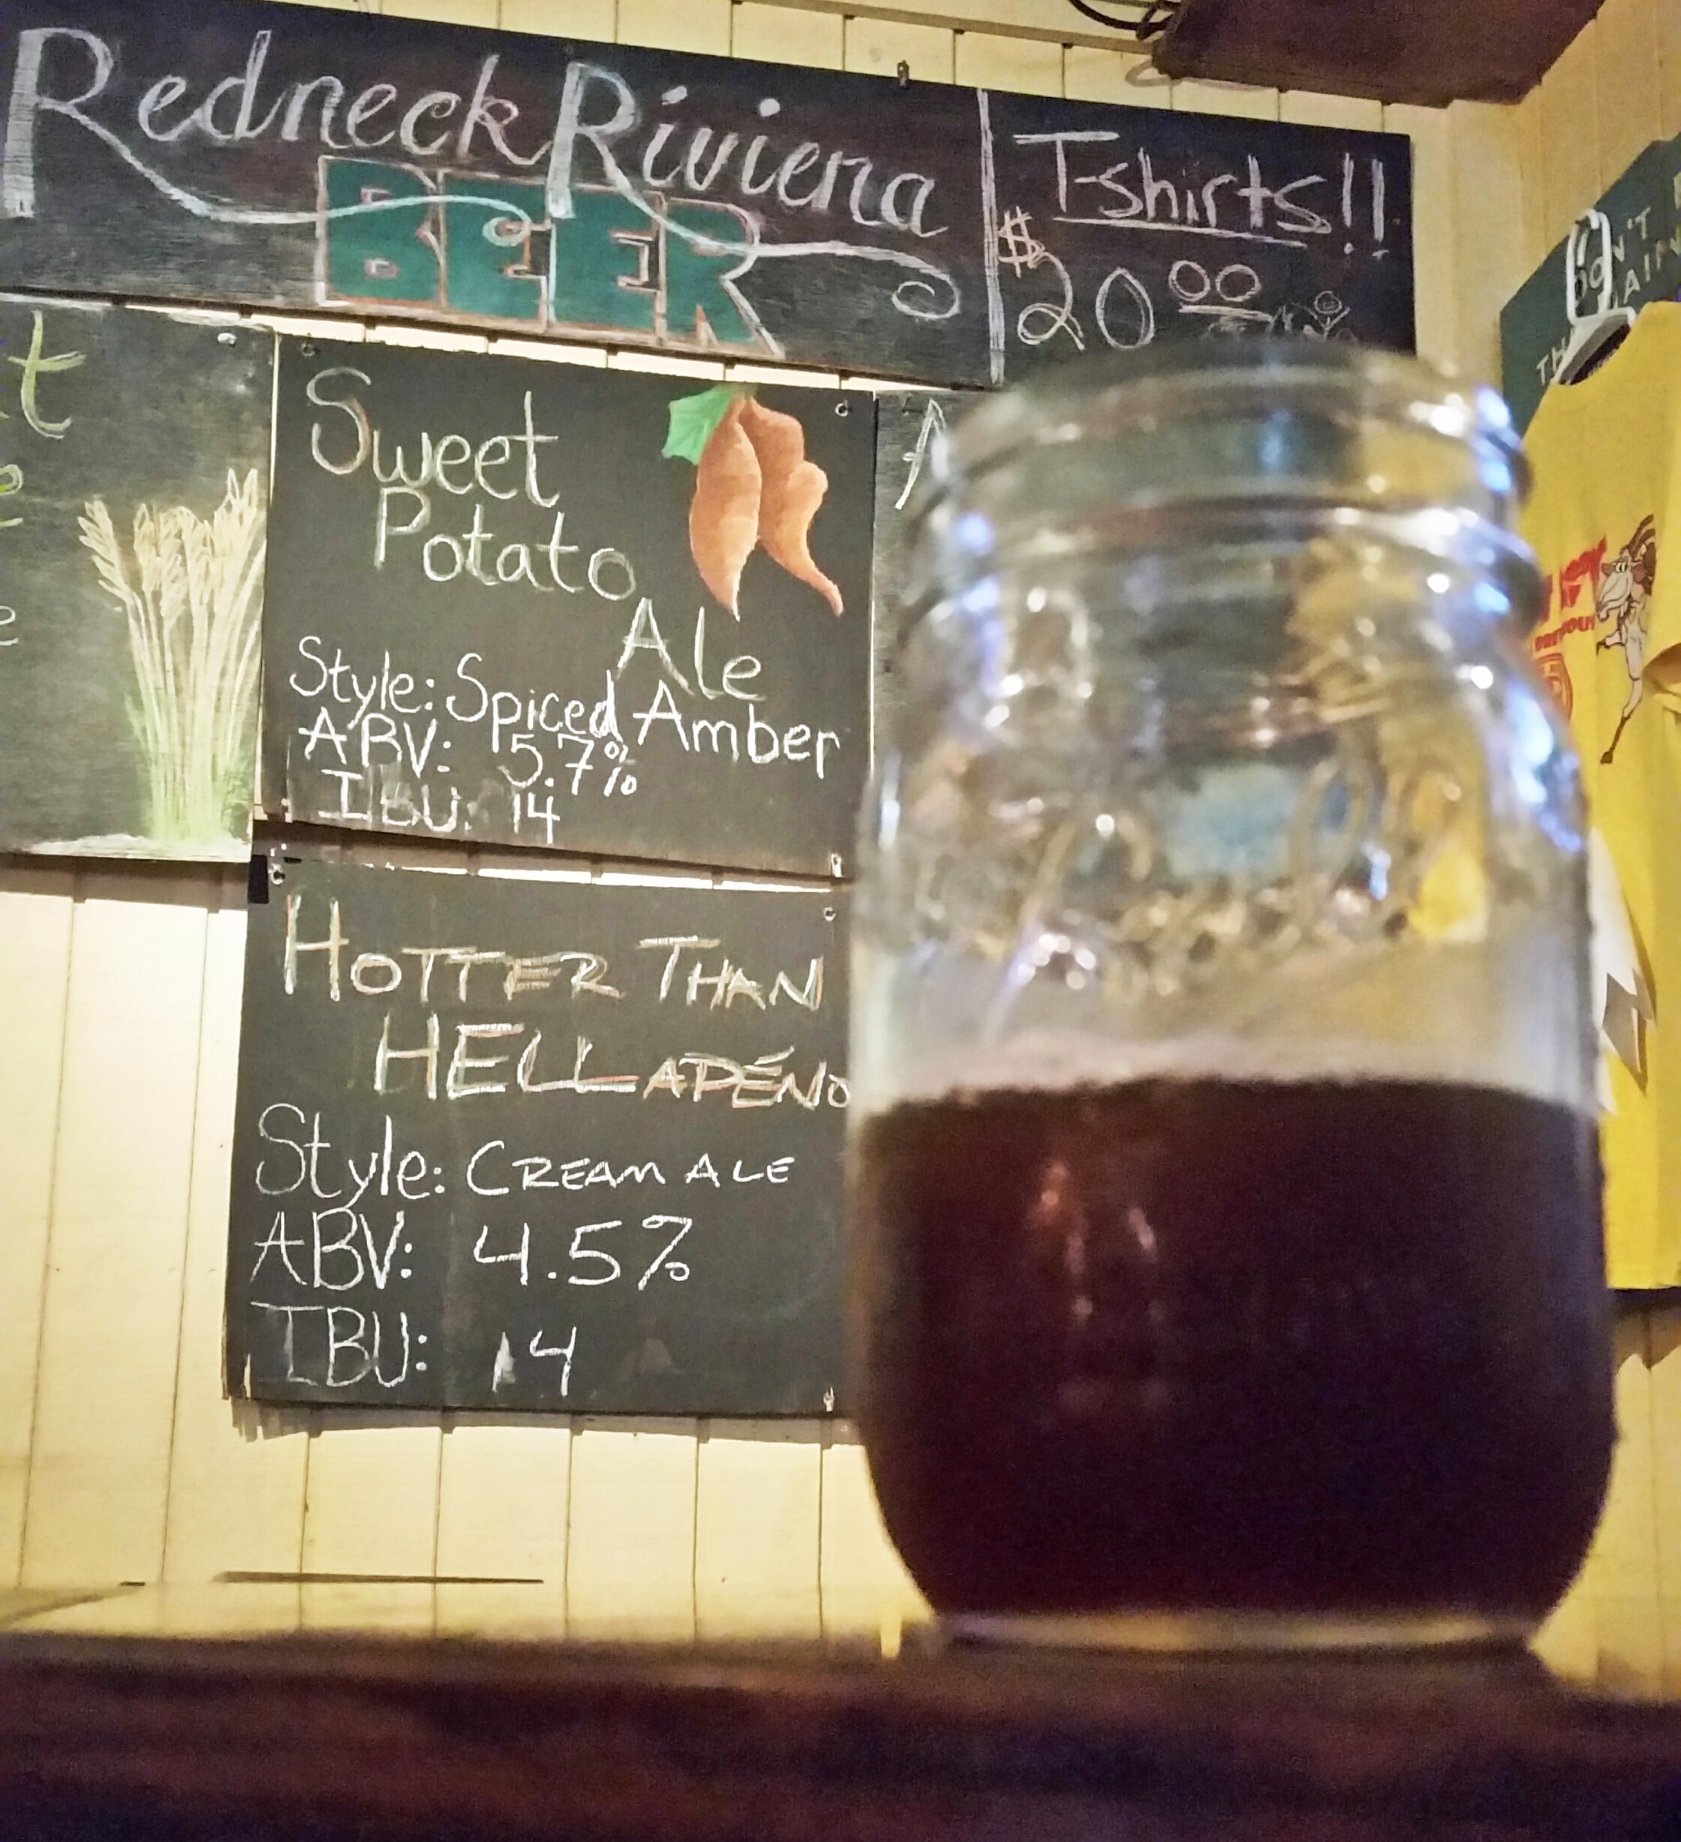 Redneck Riviera
BEER
T-shirts!!
$20.00
Sweet
Potato
Ale
Style: Spiced Amber
ABV: 5.7%
IBU: 14
HOTTER THAN
HELLAPÉNO
Style: CREAM ALE
ABV: 4.5%
IBU: 14